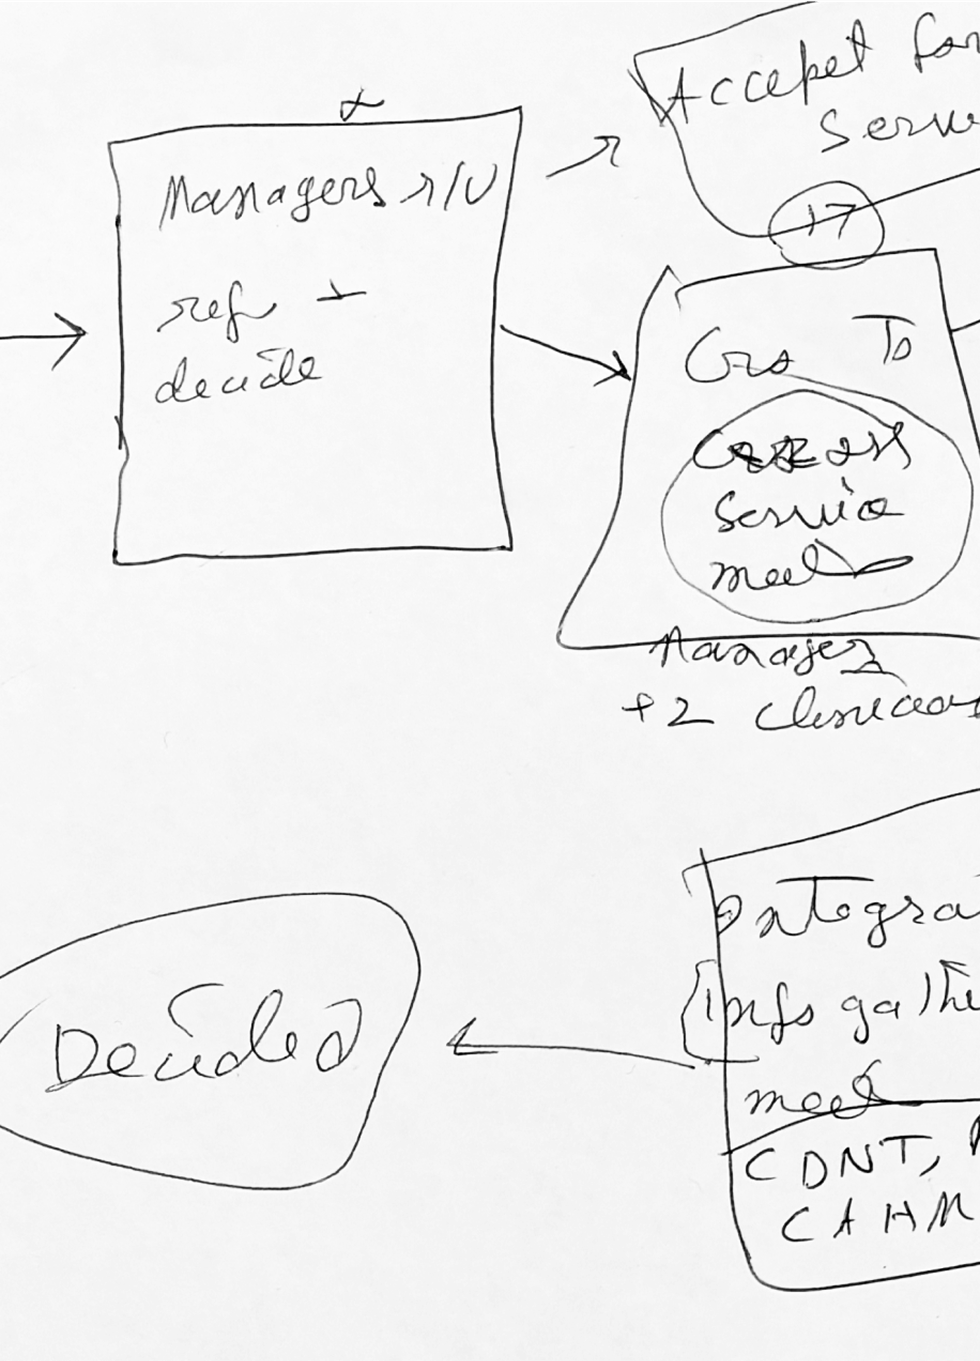 Managers r/v
ref +
decide
Accepet for
Servi
17
Gos To
Service
meet
Manager
+2 Clinician
Integra
info gathe
meet
CDNT,
CAHM
Decided